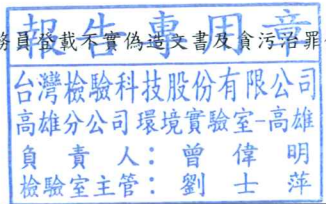 報告專用章
務員登載不實偽造文書及貪污治罪
台灣檢驗科技股份有限公司
高雄分公司環境實驗室-高雄
負責人：曾偉明
檢驗室主管：劉士萍